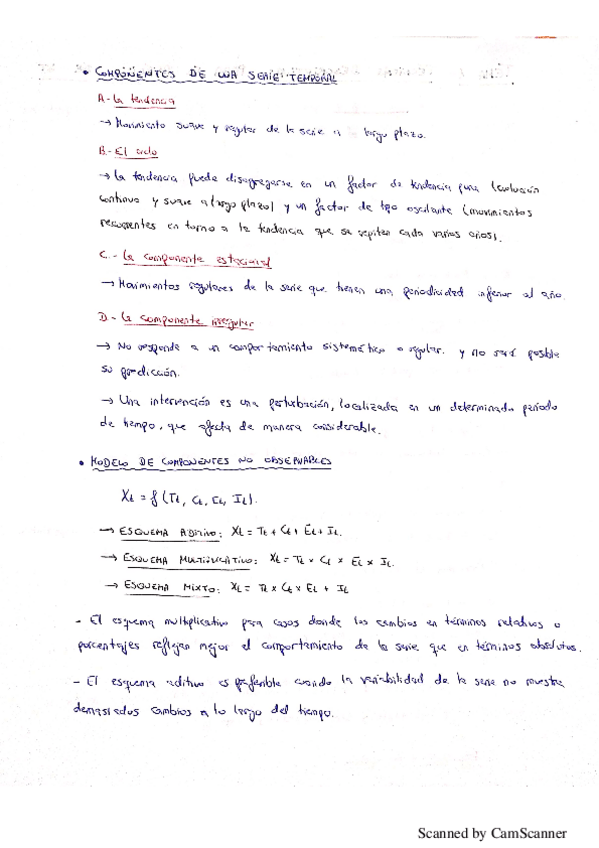 • COMPONENTES DE UNA SERIE TEMPORAL
A.- La tendencia
→ Movimiento suave y regular de la serie a largo plazo.
B.- El ciclo
→ La tendencia puede disgregarse en un factor de tendencia pura (evolución
continua y suave a largo plazo) y un factor de tipo oscilante (movimientos
recurrentes en torno a la tendencia que se repiten cada varios años).
C.- La componente estacional
→ Movimientos regulares de la serie que tienen una periodicidad inferior al año.
D.- La componente irregular
→ No responde a un comportamiento sistemático o regular. y no será posible
su predicción.
→ Una intervención es una perturbación, localizada en un determinado período
de tiempo, que afecta de manera considerable.
• MODELO DE COMPONENTES NO OBSERVABLES
Xt = f (Tt, Ct, Et, It).
→ ESQUEMA ADITIVO: Xt = Tt + Ct + Et + It.
→ ESQUEMA MULTIPLICATIVO: Xt = Tt × Ct × Et × It.
→ ESQUEMA MIXTO: Xt = Tt × Ct × Et + It
- El esquema multiplicativo para casos donde los cambios en términos relativos o
porcentajes reflejan mejor el comportamiento de la serie que en términos absolutos.
- El esquema aditivo es preferible cuando la variabilidad de la serie no muestra
demasiados cambios a lo largo del tiempo.
Scanned by CamScanner